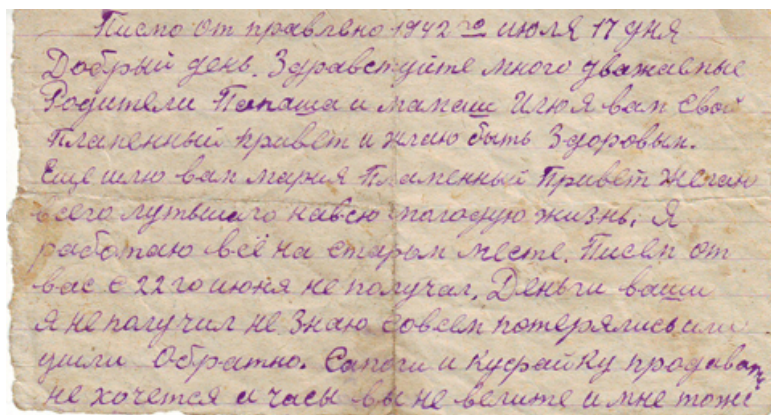 Писмо от правлено 1942 го июля 17 дня
Добрый день. Здравствуйте много уважаемые
Родители Папаша и мамаш Шлю я вам свой
Пламенный привет и жлаю быть Здоровым.
Еще шлю вам мария Пламенный Привет желаю
всего лутьшаго навсю молодую жизнь. Я
работаю всё на старом месте. Писем от
вас с 22 го июня не получал. Деньги ваши
я не получил не знаю совсем потерялись или
ушли Обратно. Сапоги и куфайку продавать
не хочется и часы вы не велите и мне тоже